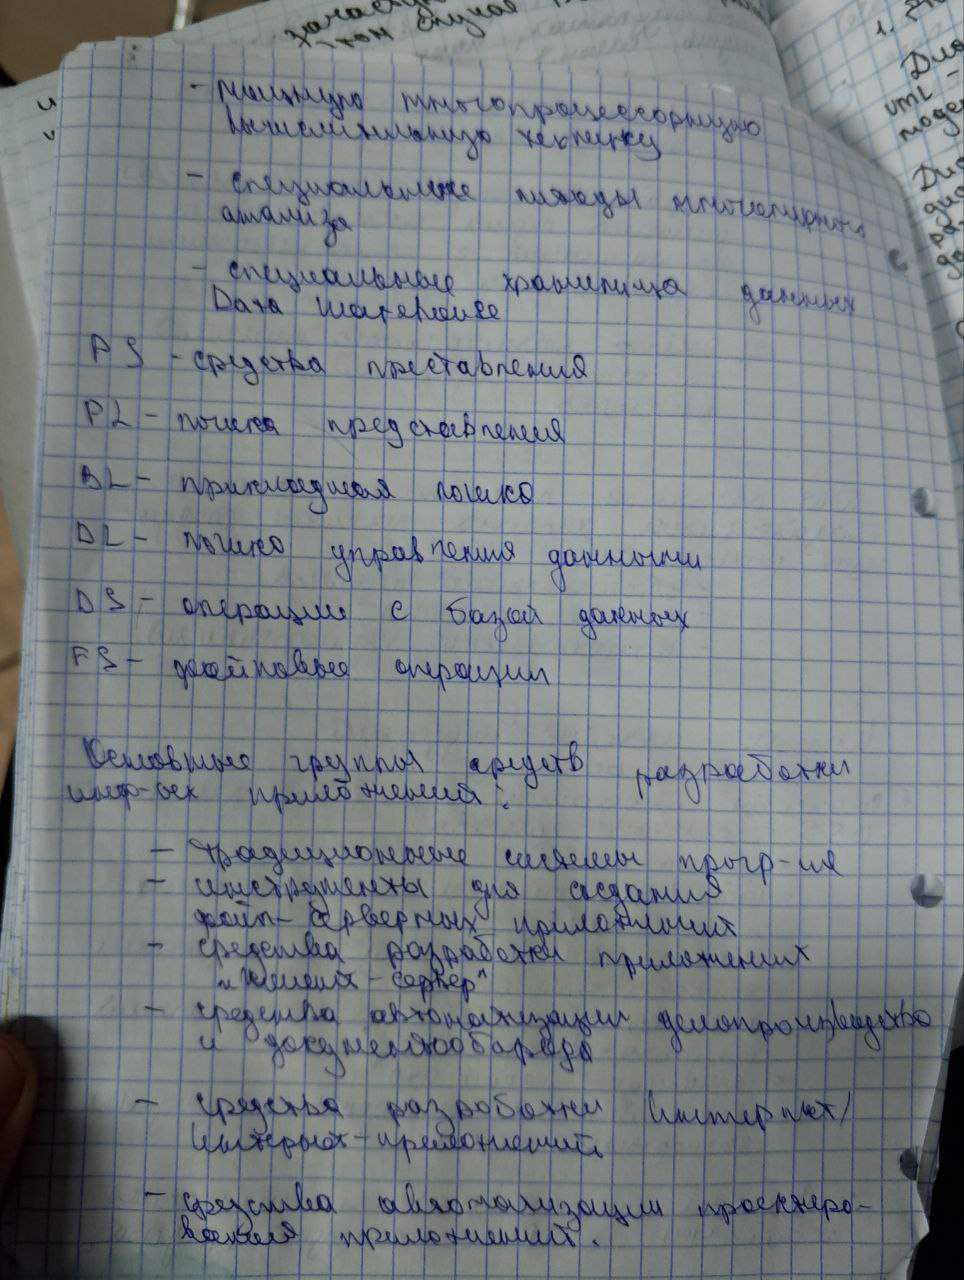 зачастую
1.
Диа
UML -
моде
Диа
- мощную многопроцессорную
вычислительную технику
- специальные методы многомерного
анализа
- специальные хранилища данных
Data Warehouse
PS - средства преставления
PL - логика представления
BL - прикладная логика
DL - логика управления данными
DS - операции с базой данных
FS - файловые операции
Основные группы средств разработки
инф-ых приложений:
- традиционные системы прогр-ия
- инструменты для создания
файл-серверных приложений
- средства разработки приложений
"Клиент-сервер"
- средства автоматизации делопроизводства
и документооборота
- средства разработки Интернет/
Интернет-приложений.
- средства автоматизации проектиро-
вания приложений.